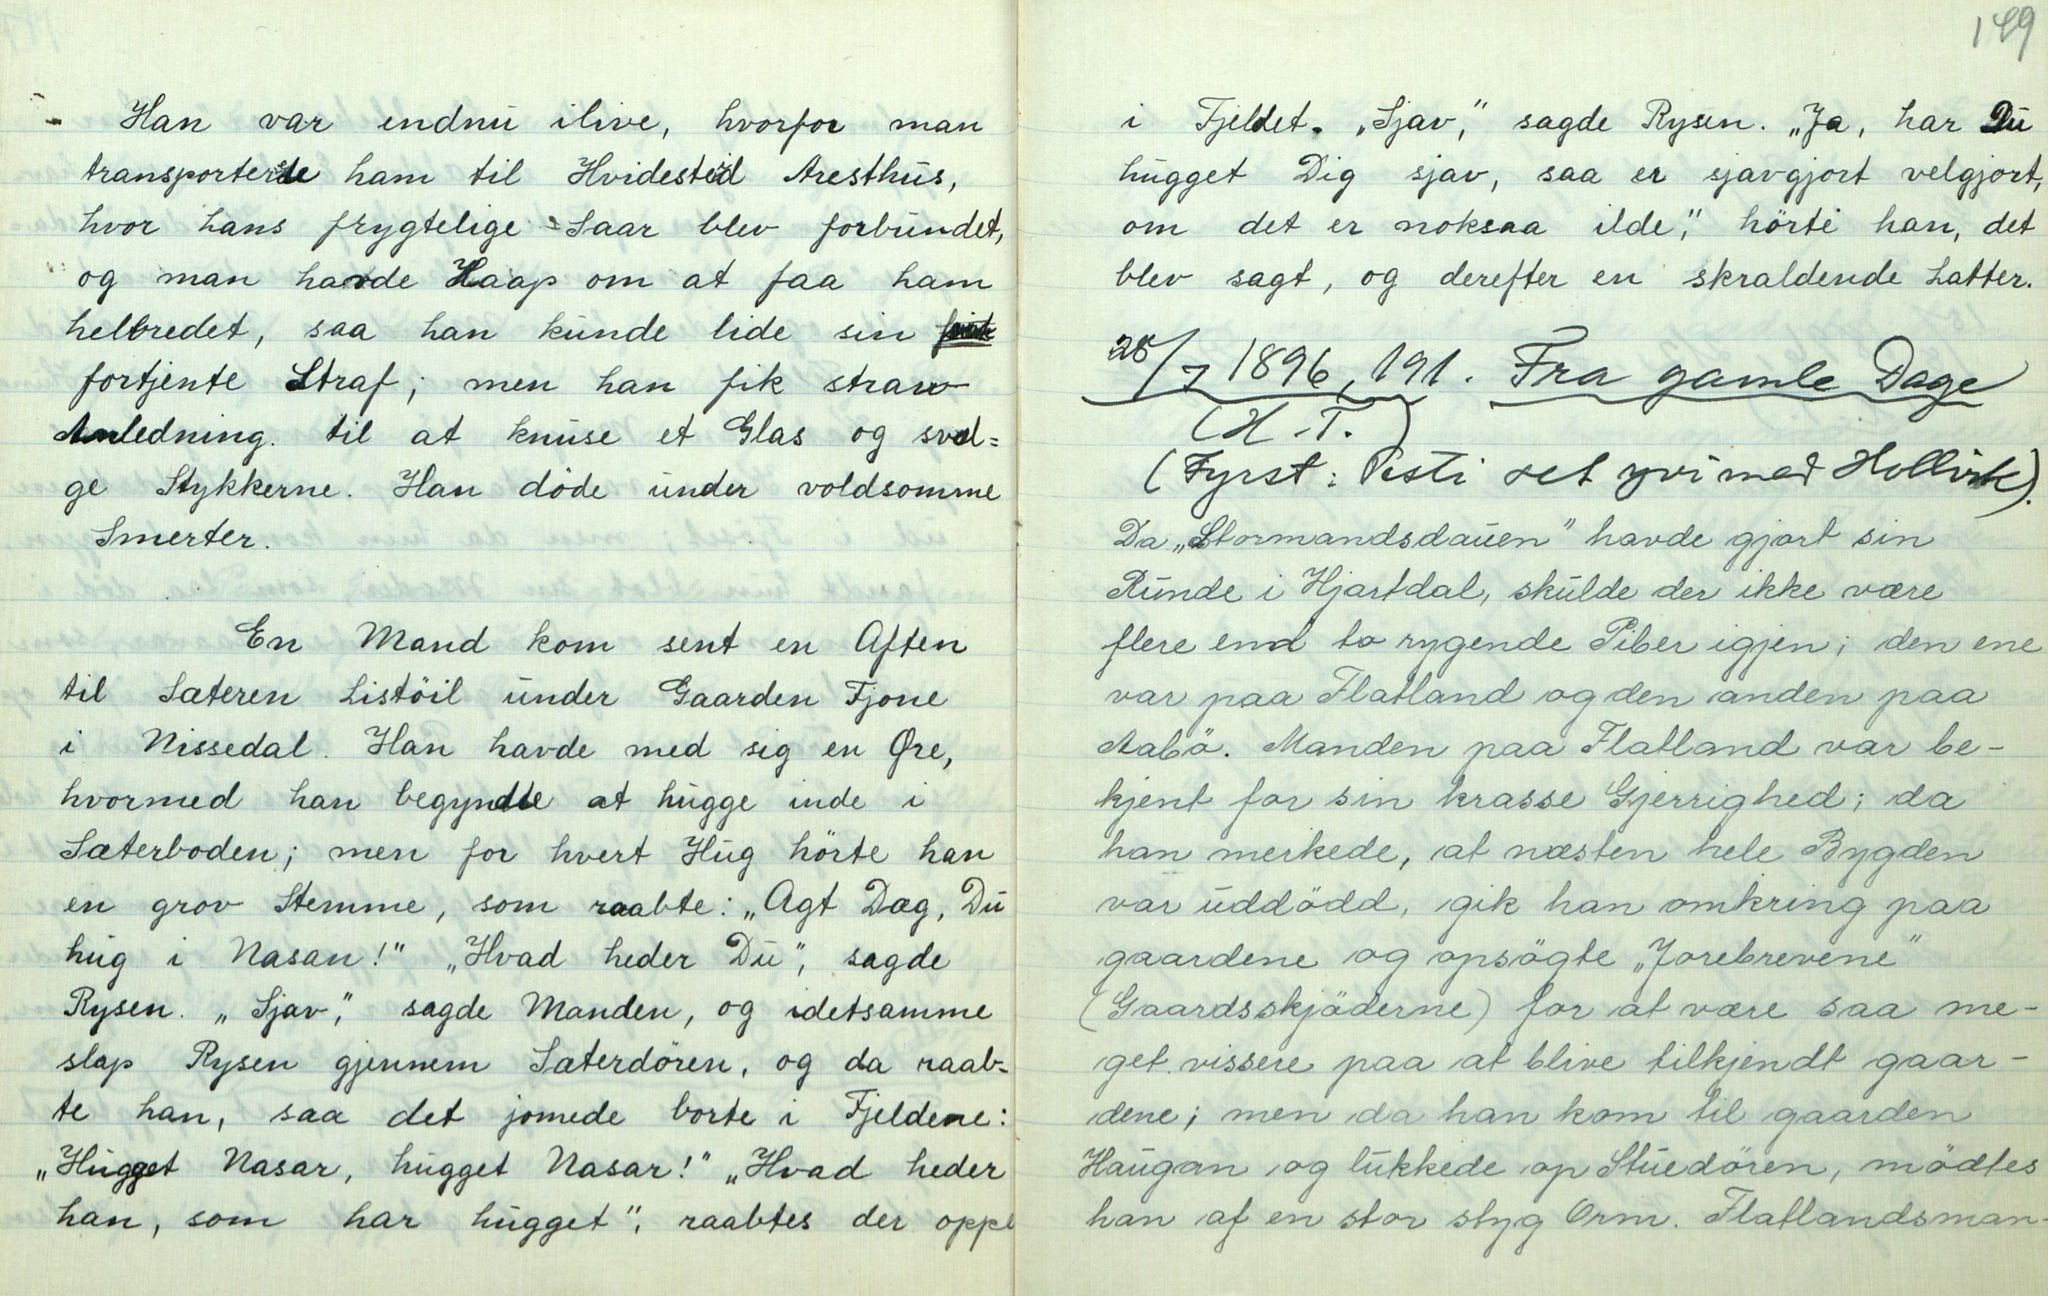 Han var endnu ilive, hvorfor man
transporterte ham til Hvidesteid Aresthus,
hvor hans frygtelige Saar blev forbundet,
og man havde Haap om at faa ham
helbredet, saa han kunde lide sin
fortjente Straf; men han fik strax
Anledning. til at knuse et Glas og svæl=
ge Stykkerne. Han döde under voldsomme
Smerter.
En Mand kom sent en Aften
til Sæteren Listöil under Gaarden Fjone
i Nissedal. Han havde med sig en Øxe,
hvormed han begyndte at hugge inde i
Sæterboden; men for hvert Hug hörte han
en grov Stemme, som raabte: „Agt Dæg, Du
hug i Nasan!" „Hvad heder Du", sagde
Rysen. „Sjav", sagde Manden, og idetsamme
slap Rysen gjennem Sæterdören, og da raab=
te han, saa det jomede borte i Fjeldene:
„Hugget Nasar, hugget Nasar!" „Hvad heder
han, som har hugget", raabtes der oppe
149
i Fjeldet. „Sjav", sagde Rysen. „Ja, har Du
hugget Dig sjav, saa er sjavgjort velgjort,
om det er noksaa ilde", hörte han, det
blev sagt, og derefter en skraldende Latter.
28/7 1896, 191. Fra gamle Dage
(H. T.)
(Fyrst: Pesti set yvi med Hollvik).
Da „Stormandsdauen" havde gjort sin
Runde i Hjartdal, skulde der ikke være
flere end to rygende Piber igjen; den ene
var paa Flatland og den anden paa
Aabö. Manden paa Flatland var be-
kjent for sin krasse Gjerrighed; da
han merkede, at næsten hele Bygden
var uddödd, gik han omkring paa
gaardene og opsögte „Jorebrevene"
(Gaardsskjöderne) for at være saa me-
get vissere paa at blive tilkjendt gaar-
dene; men da han kom til gaarden
Haugan og lukkede op Stuedören, mödtes
han af en stor styg Orm. Flatlandsman-